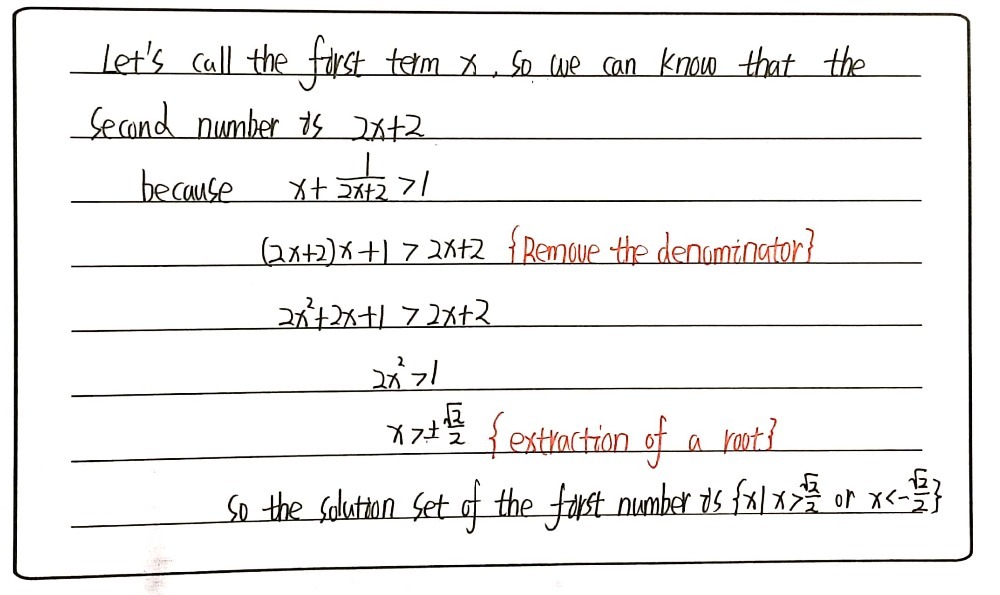 Let's call the first term x, so we can know that the
second number is 2x+2
because x+1/(2x+2)>1
(2x+2)x+1>2x+2 {Remove the denominator}
2x²+2x+1>2x+2
2x²>1
x>±√2/2 {extraction of a root}
so the solution set of the first number is {x|x>√2/2 or x<-√2/2}